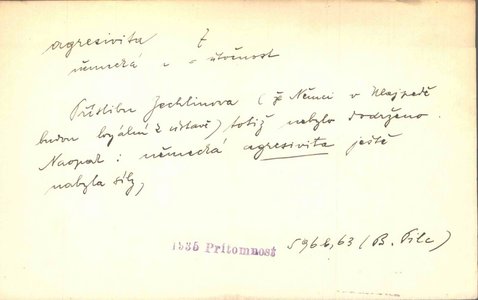 agresivita ž
německá – = útočnost
Příslibu Zechlinova (že Němci v Klajpedě
budou loyální k ústavě) totiž nebylo dodrženo.
Naopak: německá agresivita ještě
nabyla síly,
1935 Přítomnost 596b,63 (B. Pilc)